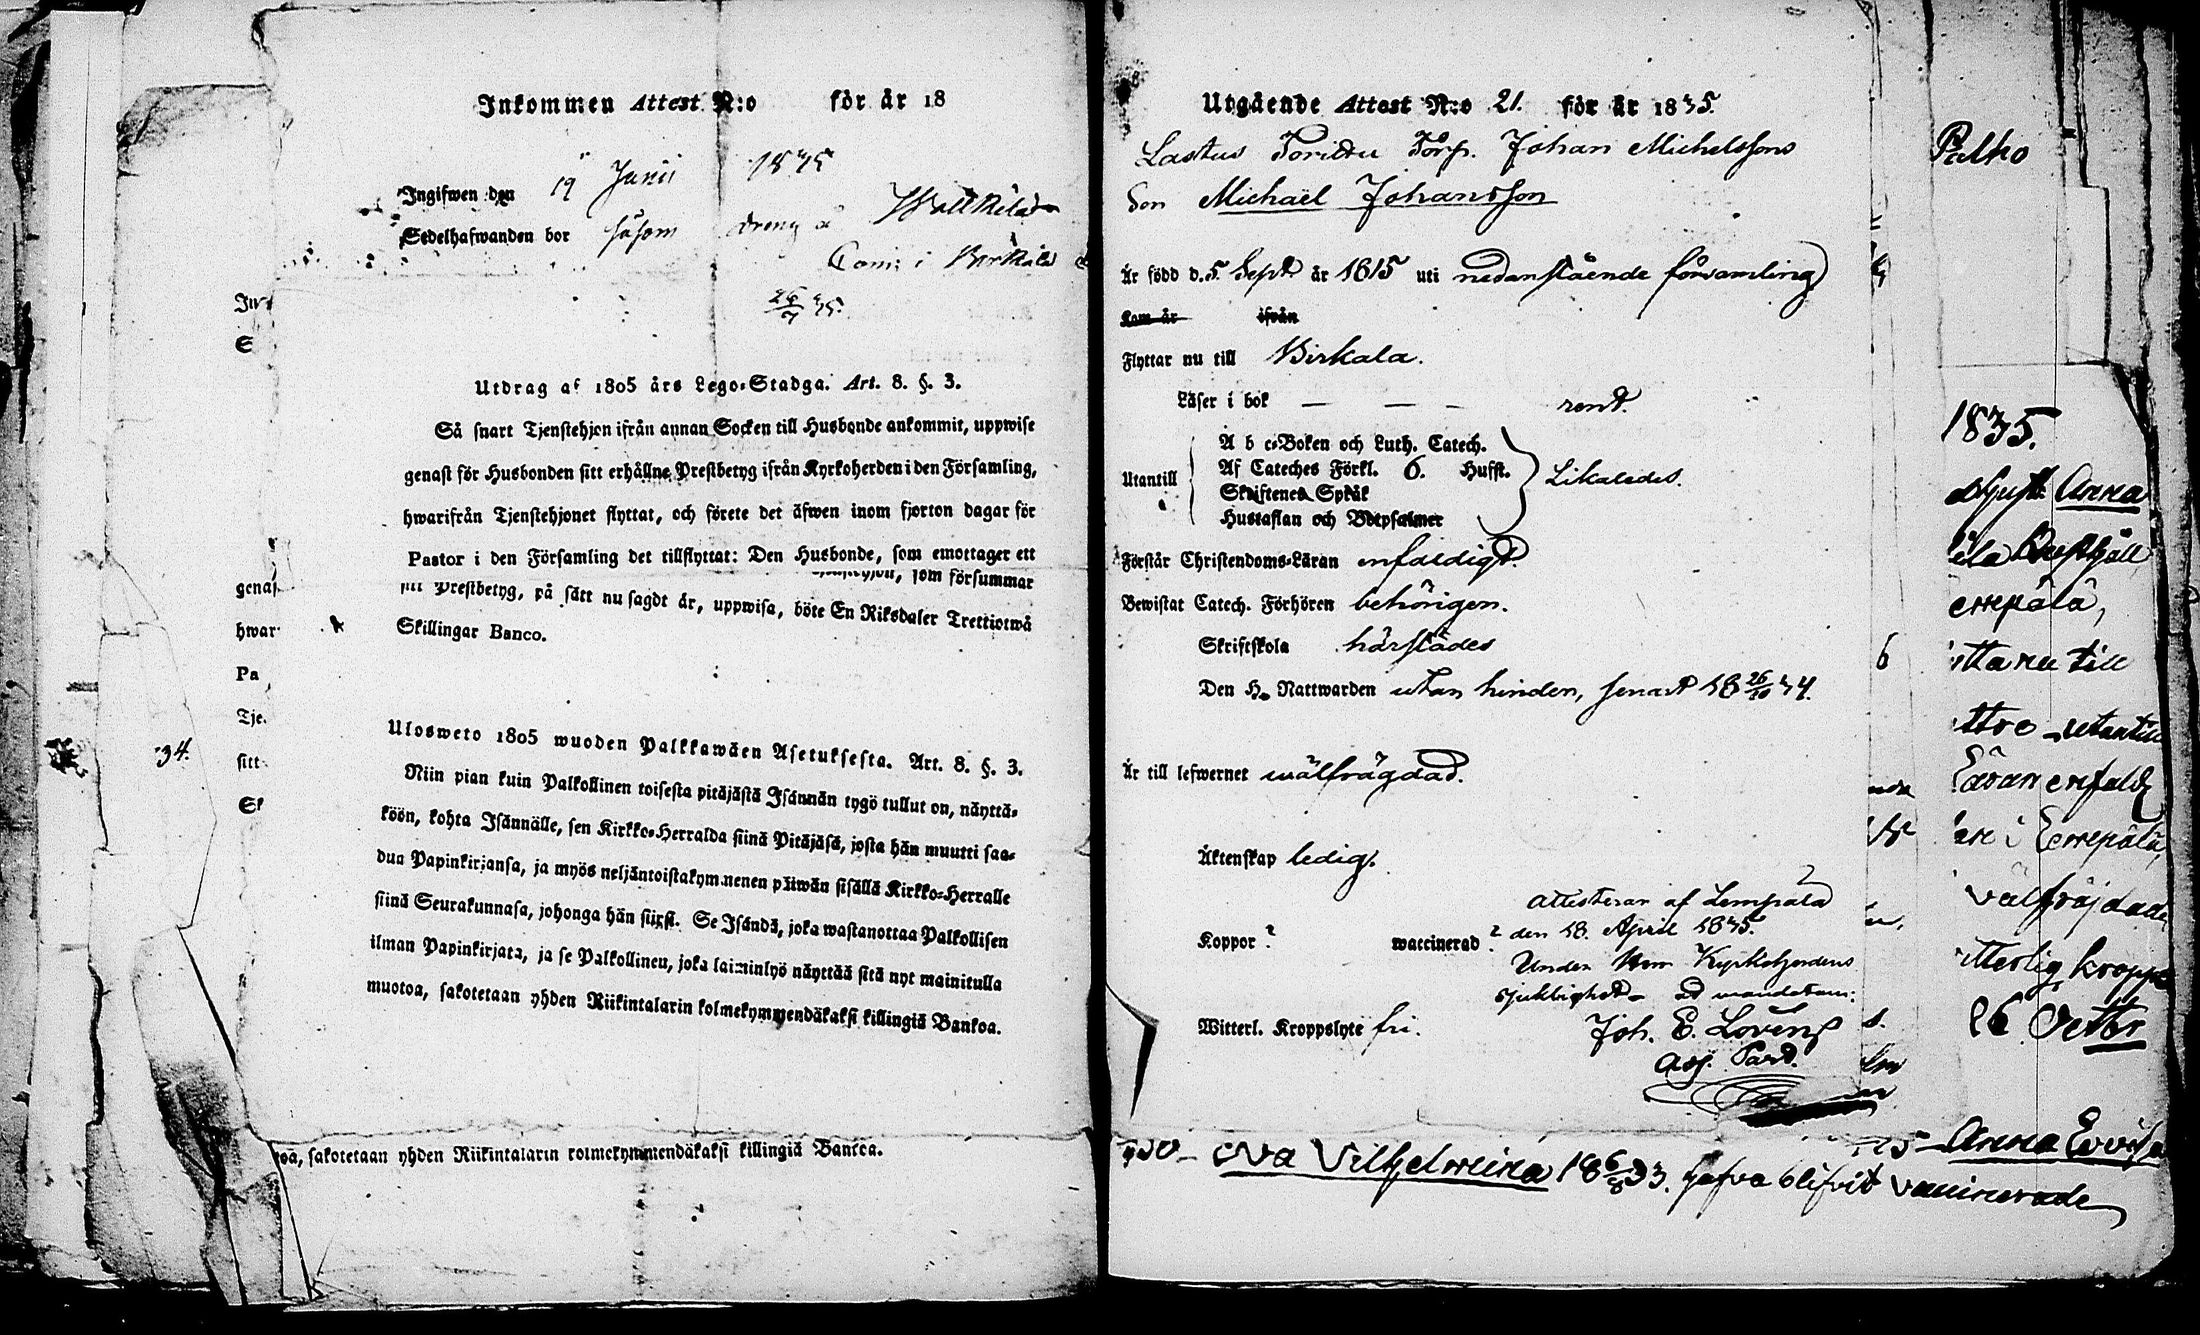 Inkommen Attest N:o för år 18
Ingifwen den 19 Junii 1835
Sedelhafwanden bor såsom dreng å
i Birkala
26/7 35.
Utdrag af 1805 års Lego-Stadga. Art. 8. §. 3.
Så snart Tjenstehjon ifrån annan Socken till Husbonde ankommit, uppwise
genast för Husbonden sitt erhållne Prestbetyg ifrån Kyrkoherden i den Församling,
hwarifrån Tjenstehjonet flyttat, och förete det äfwen inom fjorton dagar för
Pastor i den Församling det tillflyttat: Den Husbonde, som emottager ett
som försummar
sitt Prestbetyg, på sätt nu sagdt är, uppwisa, böte En Riksdaler Trettiotwå
Skillingar Banco.
Ulosweto 1805 wuoden Palkkawäen Asetuksesta. Art. 8. §. 3.
Niin pian kuin Palkollinen toisesta pitäjästä Isännän tygö tullut on, näyttä-
köön, kohta Isännälle, sen Kirkko-Herralda siinä Pitäjäsä, josta hän muutti saa-
dua Papinkirjansa, ja myös neljäntoistakymmenen päiwän sisällä Kirkko-Herralle
siinä Seurakunnasa, johonga hän siirsi. Se Isändä, joka wastanottaa Palkollisen
ilman Papinkirjata, ja se Palkollinen, joka laiminlyö näyttää sitä nyt mainitulla
muotoa, sakotetaan yhden Riikintalarin kolmekymmendäkaksi killingiä Bankoa.
sakotetaan yhden Riikintalarin kolmekymmendäkaksi killingiä Bankoa.
genas
hwar
Pa
Tje
sitt
Sk
34.
Utgående Attest N:o 21. för år 1835.
Lastus Torp. Johan Michelssons
Son Michaël Johansson
Är född d. 5 Sept år 1815 uti nedanstående församling
Kom år ifrån
Flyttar nu till Birkala.
Läser i bok — — — rent.
Utantill
A b c-Boken och Luth. Catech.
Af Cateches Förkl. 6. Hufst.
Skriftenes Språk
Hustaflan och Botpsalmer
Likaledes.
Förstår Christendoms-Läran enfaldigt.
Bewistat Catech. Förhören behörigen.
Skriftskola härstädes
Den H. Nattwarden utan hinder, senast 18 26/10 34.
Är till lefwernet wälfrägdad.
Äktenskap ledig.
Koppor ? waccinerad ?
Witterl. Kroppslyte fri.
attesterar af Lempäla
den 18. April 1835.
Under Herr Kyrkoherdens
sjuklighet ad mandatum:
Joh. E. Lovén
adj. Past.
Eva Vilhelmina 18 6/8 33. hafva blifvit vaccinerade
Palho
1835.
Anna
till
utantill
enfald
i
välfräjdade
kropps
26 Octbr
Anna Lovisa